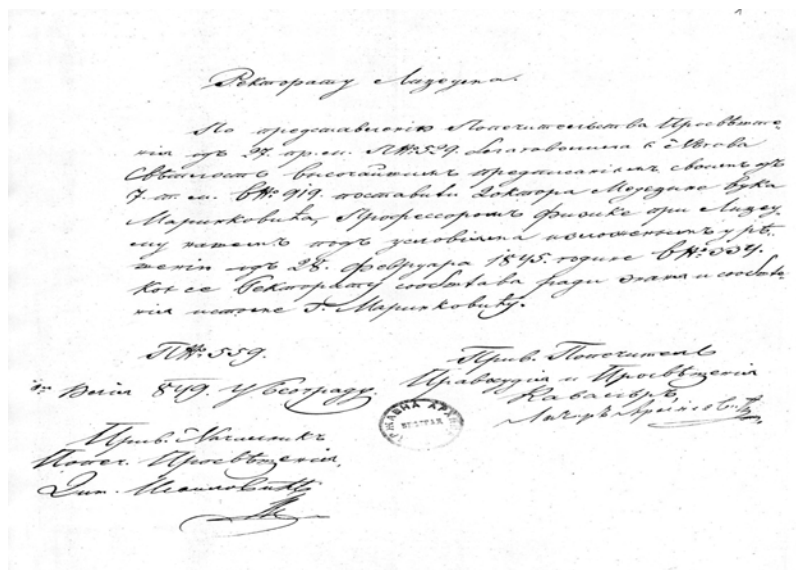 Ректорату Лицеума.
По представленію Попечительства Просвѣште-
нія одъ 27. пр. м. П№ 529. благоволила є Нѣгова
Свѣтлость высочайшимъ предписаніемъ своимъ одъ
7. т. м. В№ 919. поставити Доктора Медецине Вука
Маринковића, Профессоромъ Физике при Лицеу-
му нашемъ подъ условіяма изложенимъ у рѣ-
шенію одъ 28. Февруара 1845. године В№ 334.
кое се Ректорату сообштава ради знаня и сообште-
нія истоме Г. Маринковићу.
П№ 559.
Юнія 849. У Београду
Прив. Попечитель
Правосудія и Просвѣштенія
Кавалѣръ,
ДРЖАВНА АРХИВА
БЕОГРАД
Прив. Началникъ
Попеч. Просвѣштенія,
Дим. Исаиловић